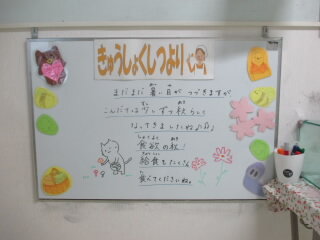 きゅうしょくしつより
まだまだ暑い日がつづきますが
こんだては少しずつ秋らしく
なってきましたね♪
食欲の秋!
給食もたくさん
食べてくださいね。